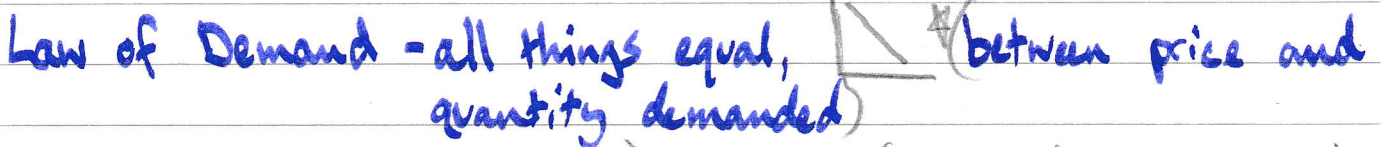 Law of Demand - all things equal, (between price and
quantity demanded)